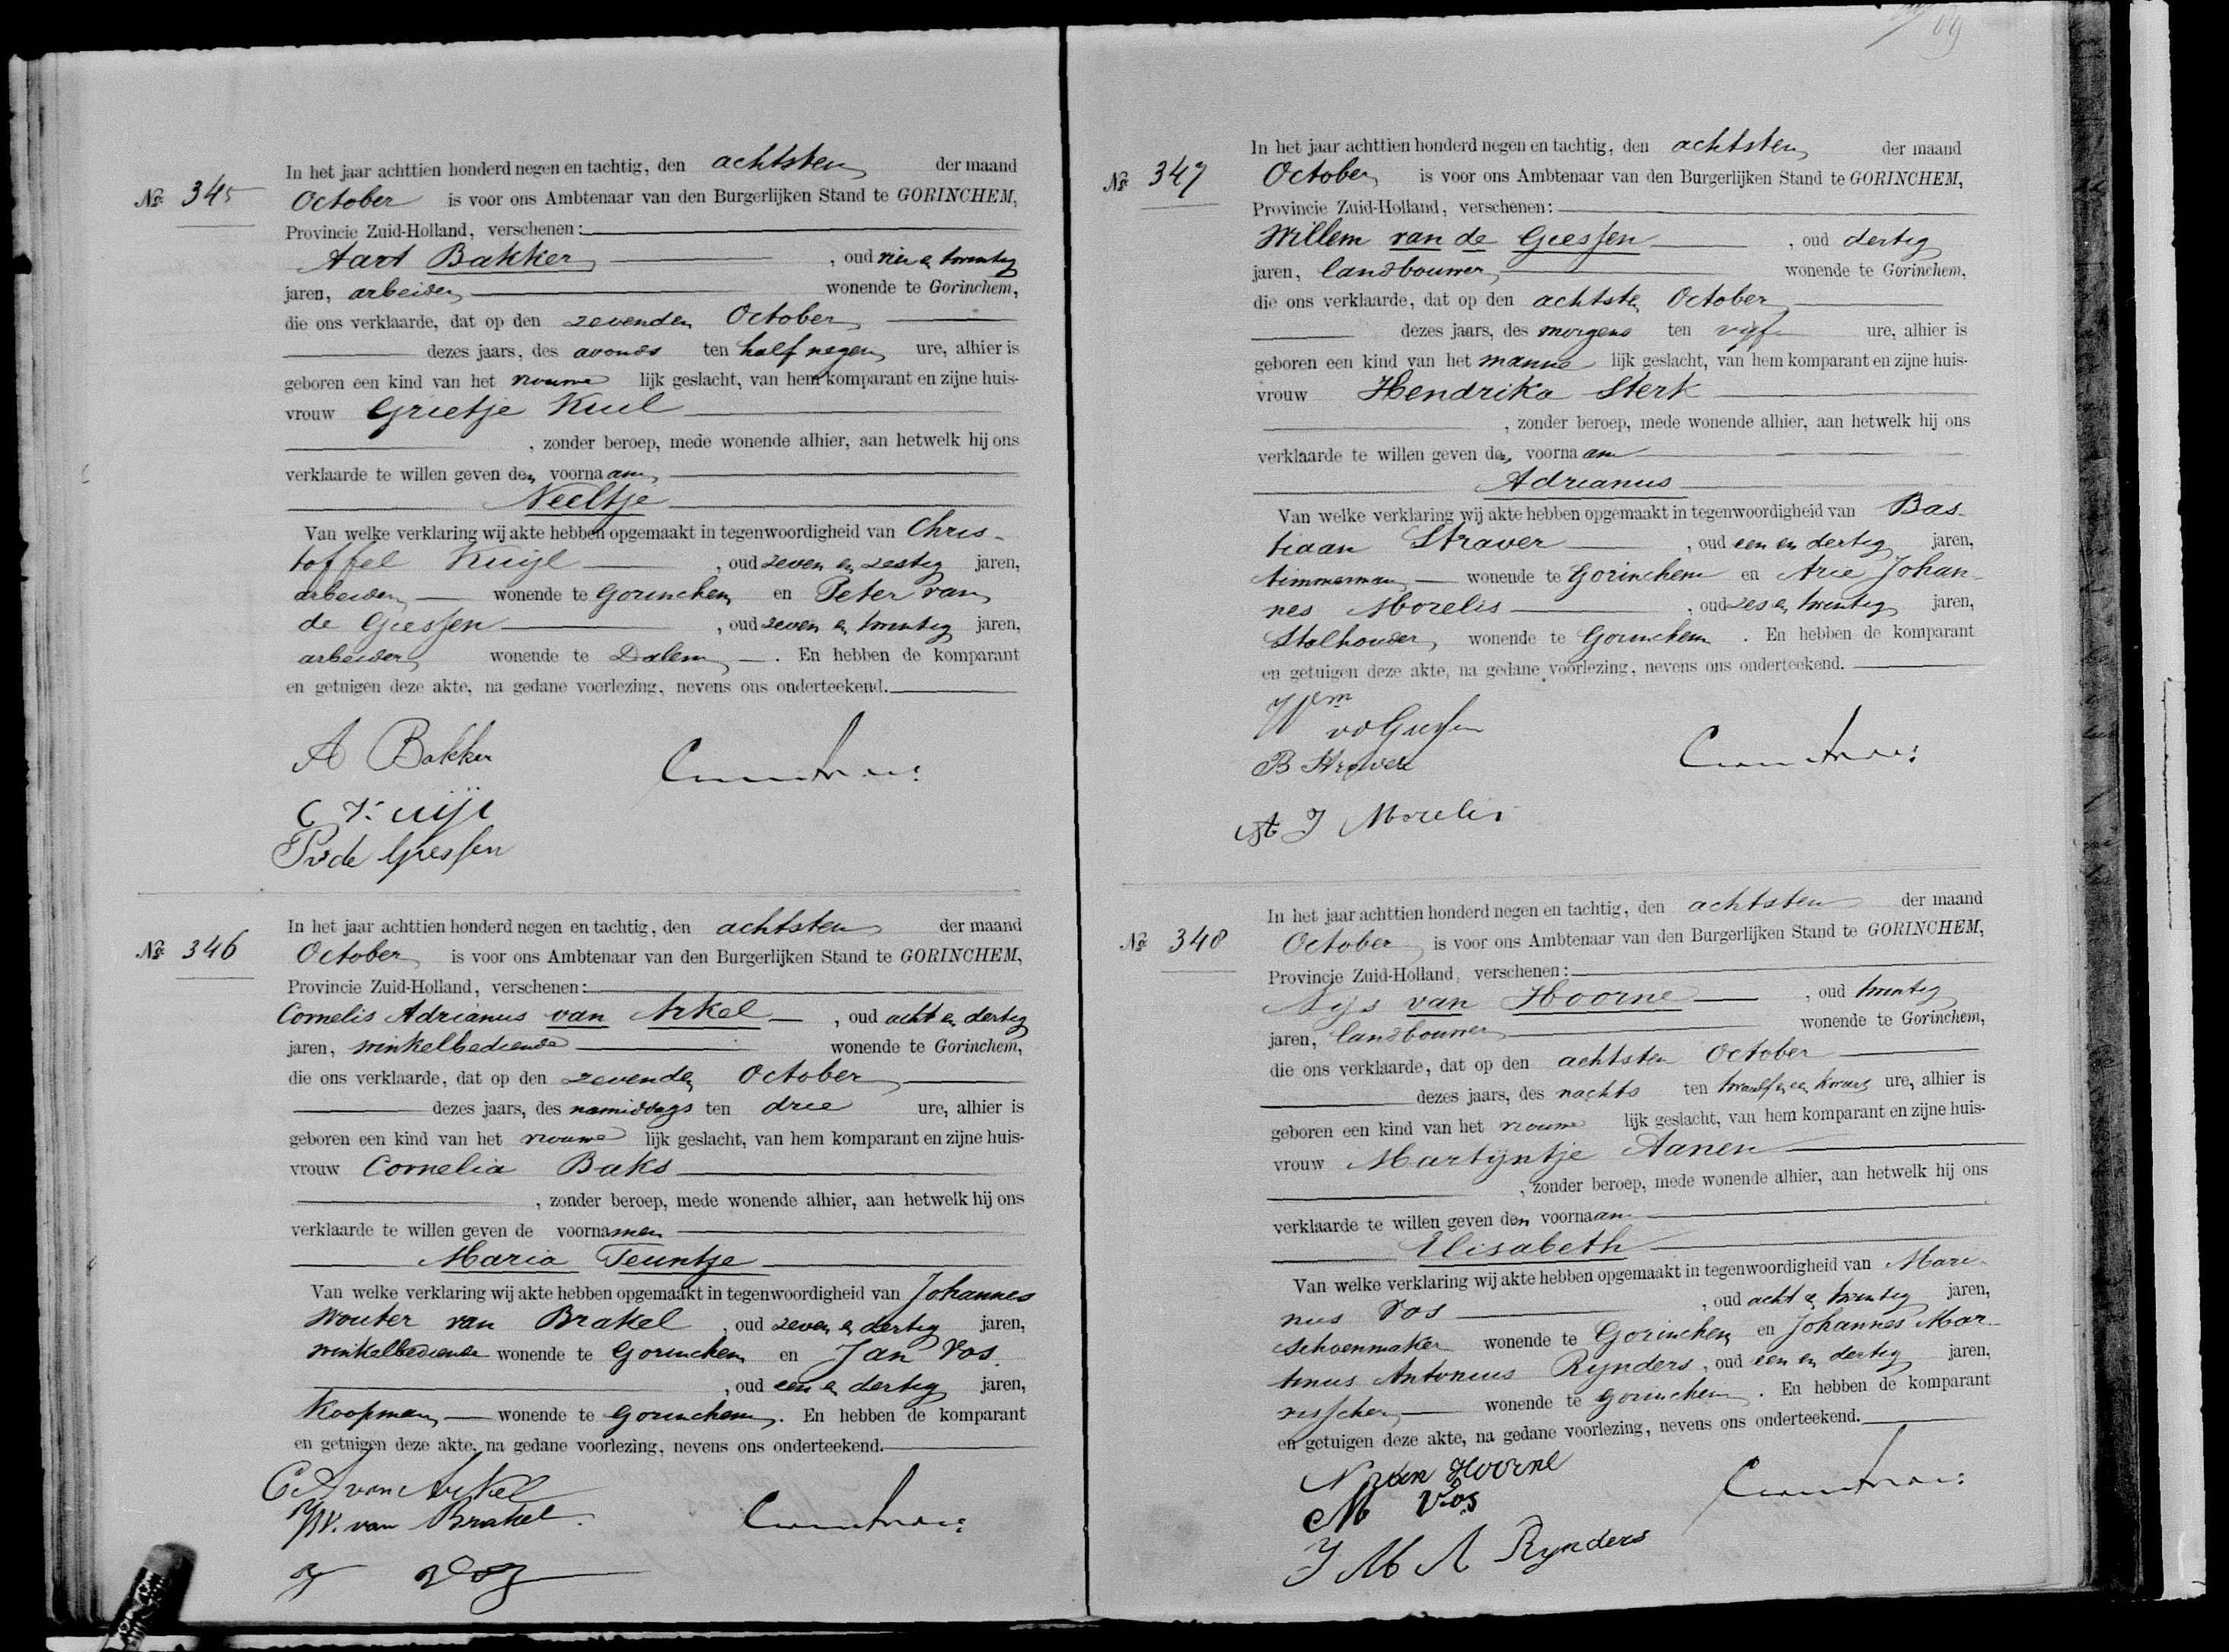 No. 345
In het jaar achttien honderd negen en tachtig, den achtsten der maand
October is voor ons Ambtenaar van den Burgerlijken Stand te GORINCHEM,
Provincie Zuid-Holland, verschenen:
Aart Bakker, oud vier en twintig
jaren, arbeider, wonende te Gorinchem,
die ons verklaarde, dat op den zevenden October
dezes jaars, des avonds ten half negen ure, alhier is
geboren een kind van het vrouwe lijk geslacht, van hem komparant en zijne huis-
vrouw Grietje Kuil
, zonder beroep, mede wonende alhier, aan hetwelk hij ons
verklaarde te willen geven den voornaam
Neeltje
Van welke verklaring wij akte hebben opgemaakt in tegenwoordigheid van Chris-
toffel Kuijl, oud zeven en zestig jaren,
arbeider wonende te Gorinchem en Peter van
de Giessen, oud zeven en twintig jaren,
arbeider wonende te Dalem. En hebben de komparant
en getuigen deze akte, na gedane voorlezing, nevens ons onderteekend.
A Bakker
C Kuijl
P v de Giessen
No. 346
In het jaar achttien honderd negen en tachtig, den achtsten der maand
October is voor ons Ambtenaar van den Burgerlijken Stand te GORINCHEM,
Provincie Zuid-Holland, verschenen:
Cornelis Adrianus van Arkel, oud acht en dertig
jaren, winkelbediende wonende te Gorinchem,
die ons verklaarde, dat op den zevenden October
dezes jaars, des namiddags ten drie ure, alhier is
geboren een kind van het vrouwe lijk geslacht, van hem komparant en zijne huis-
vrouw Cornelia Baks
, zonder beroep, mede wonende alhier, aan hetwelk hij ons
verklaarde te willen geven de voornamen
Maria Teuntje
Van welke verklaring wij akte hebben opgemaakt in tegenwoordigheid van Johannes
Wouter van Brakel, oud zeven en dertig jaren,
winkelbediende wonende te Gorinchem en Jan Vos
, oud een en dertig jaren,
Koopman wonende te Gorinchem. En hebben de komparant
en getuigen deze akte, na gedane voorlezing, nevens ons onderteekend.
C A van Arkel
J W. van Brakel
J Vos
No. 347
In het jaar achttien honderd negen en tachtig, den achtsten der maand
October is voor ons Ambtenaar van den Burgerlijken Stand te GORINCHEM,
Provincie Zuid-Holland, verschenen:
Willem van de Giessen, oud dertig
jaren, landbouwer, wonende te Gorinchem,
die ons verklaarde, dat op den achtsten October
dezes jaars, des morgens ten vijf ure, alhier is
geboren een kind van het manne lijk geslacht, van hem komparant en zijne huis-
vrouw Hendrika Sterk
, zonder beroep, mede wonende alhier, aan hetwelk hij ons
verklaarde te willen geven den voornaam
Adrianus
Van welke verklaring wij akte hebben opgemaakt in tegenwoordigheid van Bas-
tiaan Straver, oud een en dertig jaren,
timmerman wonende te Gorinchem en Arie Johan-
nes Morelis, oud zes en twintig jaren,
Stalhouder, wonende te Gorinchem. En hebben de komparant
en getuigen deze akte, na gedane voorlezing, nevens ons onderteekend.
Wem
vd Giessen
B Straver
A J Morelis
No. 348
In het jaar achttien honderd negen en tachtig, den achtsten der maand
October is voor ons Ambtenaar van den Burgerlijken Stand te GORINCHEM,
Provincie Zuid-Holland, verschenen:
Nijs van Hoorne, oud twintig
jaren, landbouwer wonende te Gorinchem,
die ons verklaarde, dat op den achtsten October
dezes jaars, des nachts ten twaalf en een kwart ure, alhier is
geboren een kind van het vrouwe lijk geslacht, van hem komparant en zijne huis-
vrouw Martijntje Aanen
, zonder beroep, mede wonende alhier, aan hetwelk hij ons
verklaarde te willen geven den voornaam
Elisabeth
Van welke verklaring wij akte hebben opgemaakt in tegenwoordigheid van Mari-
nus Vos, oud acht en twintig jaren,
schoenmaker wonende te Gorinchem en Johannes Mar-
tinus Antonius Rijnders, oud een en dertig jaren,
visscher, wonende te Gorinchem. En hebben de komparant
en getuigen deze akte, na gedane voorlezing, nevens ons onderteekend.
N van Hoorne
M Vos
J M A Rynders